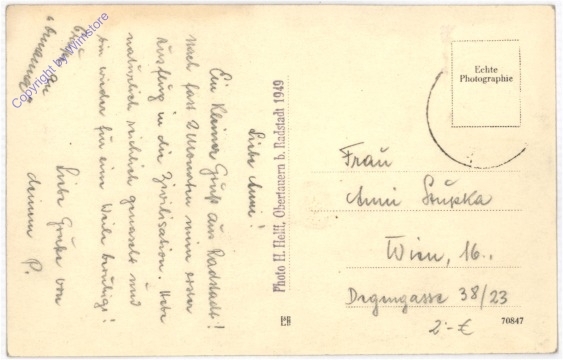 Liebe Anni!
Ein kleiner Gruß aus Radstadt!
Nach fast 2 Monaten mein erster
Ausflug in die Zivilisation. Habe
natürlich reichlich genascht und
bin wieder für eine Weile beruhigt!
Liebe Grüße von
deinem P.
Copyright by Wimstore
Photo H. Heiff, Obertauern b. Radstadt 1949
Echte
Photographie
Frau
Anni Stupka
Wien, 16.,
Degengasse 38/23
2.-€
70847